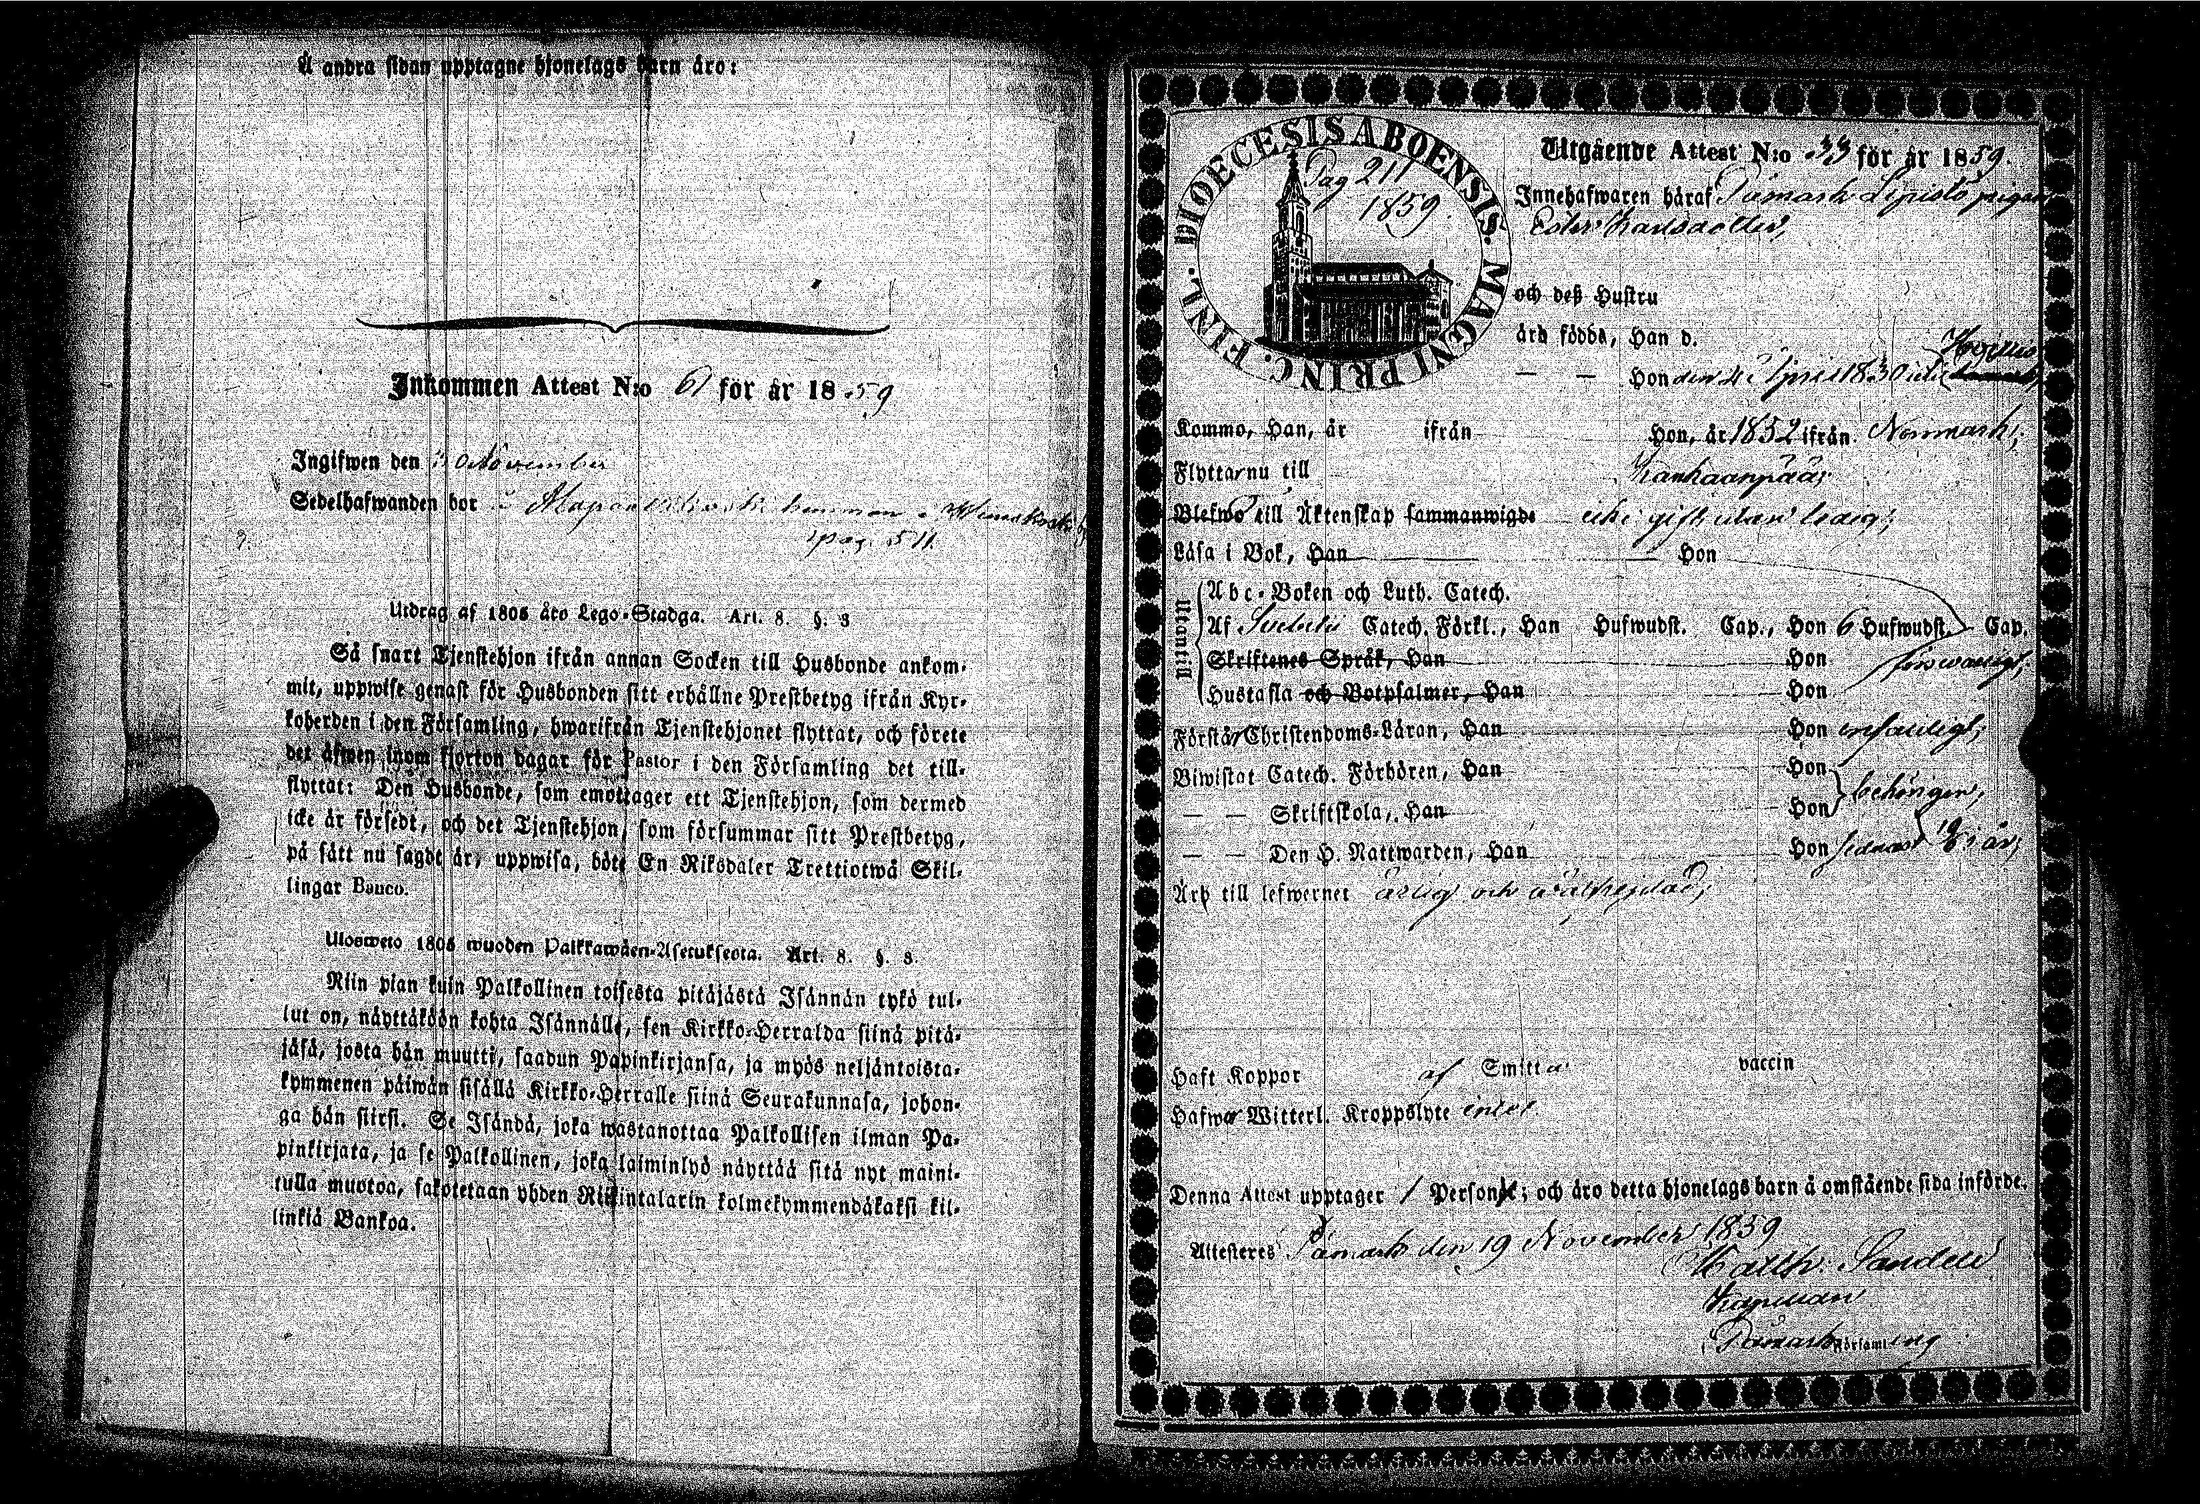 Å andra sidan upptagne hjonelags barn äro:
Inkommen Attest N:o 61 för år 1859
Ingifwen den November
Sedelhafwanden bor i hemman
pag. 511.
Utdrag af 1805 års Lego-Stadga. Art. 8. §. 3
Så snart Tjenstehjon ifrån annan Socken till Husbonde ankom-
mit, uppwise genast för Husbonden sitt erhållne Prestbetyg ifrån Kyr-
koherden i den Församling, hwarifrån Tjenstehjonet flyttat, och förete
det äfwen inom fjorton dagar för Pastor i den Församling det till-
flyttat: Den Husbonde, som emottager ett Tjenstehjon, som dermed
icke är försedt, och det Tjenstehjon, som försummar sitt Prestbetyg,
på sätt nu sagdt är, uppwisa, böte En Riksdaler Trettiotwå Skil-
lingar Banco.
Ulosweto 1805 wuoden Palkkawäen-Asetuksesta. Art. 8. §. 3.
Niin pian kuin Palkollinen toisesta pitäjästä Isännän tykö tul-
lut on, näyttäköön kohta Isännälle, sen Kirkko-Herralda siinä pitä-
jäsä, josta hän muutti, saadun Papinkirjansa, ja myös neljäntoista-
kymmenen päiwän sisällä Kirkko-Herralle siinä Seurakunnasa, johon-
ga hän siirsi. Se Isändä, joka wastanottaa Palkollisen ilman Pa-
pinkirjata, ja se Palkollinen, joka laiminlyö näyttää sitä nyt maini-
tulla muotoa, sakotetaan yhden Riikintalarin kolmekymmendäkaksi kil-
linkiä Bankoa.
DIOECESIS ABOENSIS. MAGNI PRINC. FINL.
Pag 211
1859.
Utgående Attest N:o 33 för år 1859.
Innehafwaren häraf Påmark Lepistö pigan
Ester Karlsdotter,
och deß Hustru
äro födde, Han d.
— — Hon den 4 April 1830
Kommo, Han, år ifrån Hon, år 1852 ifrån Norrmark;
Flyttar nu till Kankaanpää;
Blefwo till Äktenskap sammanwigde gift utan ledig;
Läsa i Bok, Han Hon
Utantill
Abc-Boken och Luth. Catech.
Af Svebilii Catech. Förkl., Han Hufwudst. Cap., Hon 6 Hufwudst. Cap.
Skriftenes Språk, Han Hon försvarligt;
Hustafla och Botpsalmer, Han Hon
Förstår Christendoms-Läran, Han Hon enfaldigt;
Biwistat Catech. Förhören, Han Hon
behörigen;
— — Skriftskola, Han Hon
— — Den H. Nattwarden, Han Hon sednast i år;
Är till lefwernet ärlig och wälfrejdad;
Haft Koppor af Smitta vaccin
Hafwa Witterl. Kroppslyte intet
Denna Attest upptager 1 Person; och äro detta hjonelags barn å omstående sida införde.
Attesteres Påmark den 19 November 1859
Matth. Sandell
Kapellan
Påmark Församling